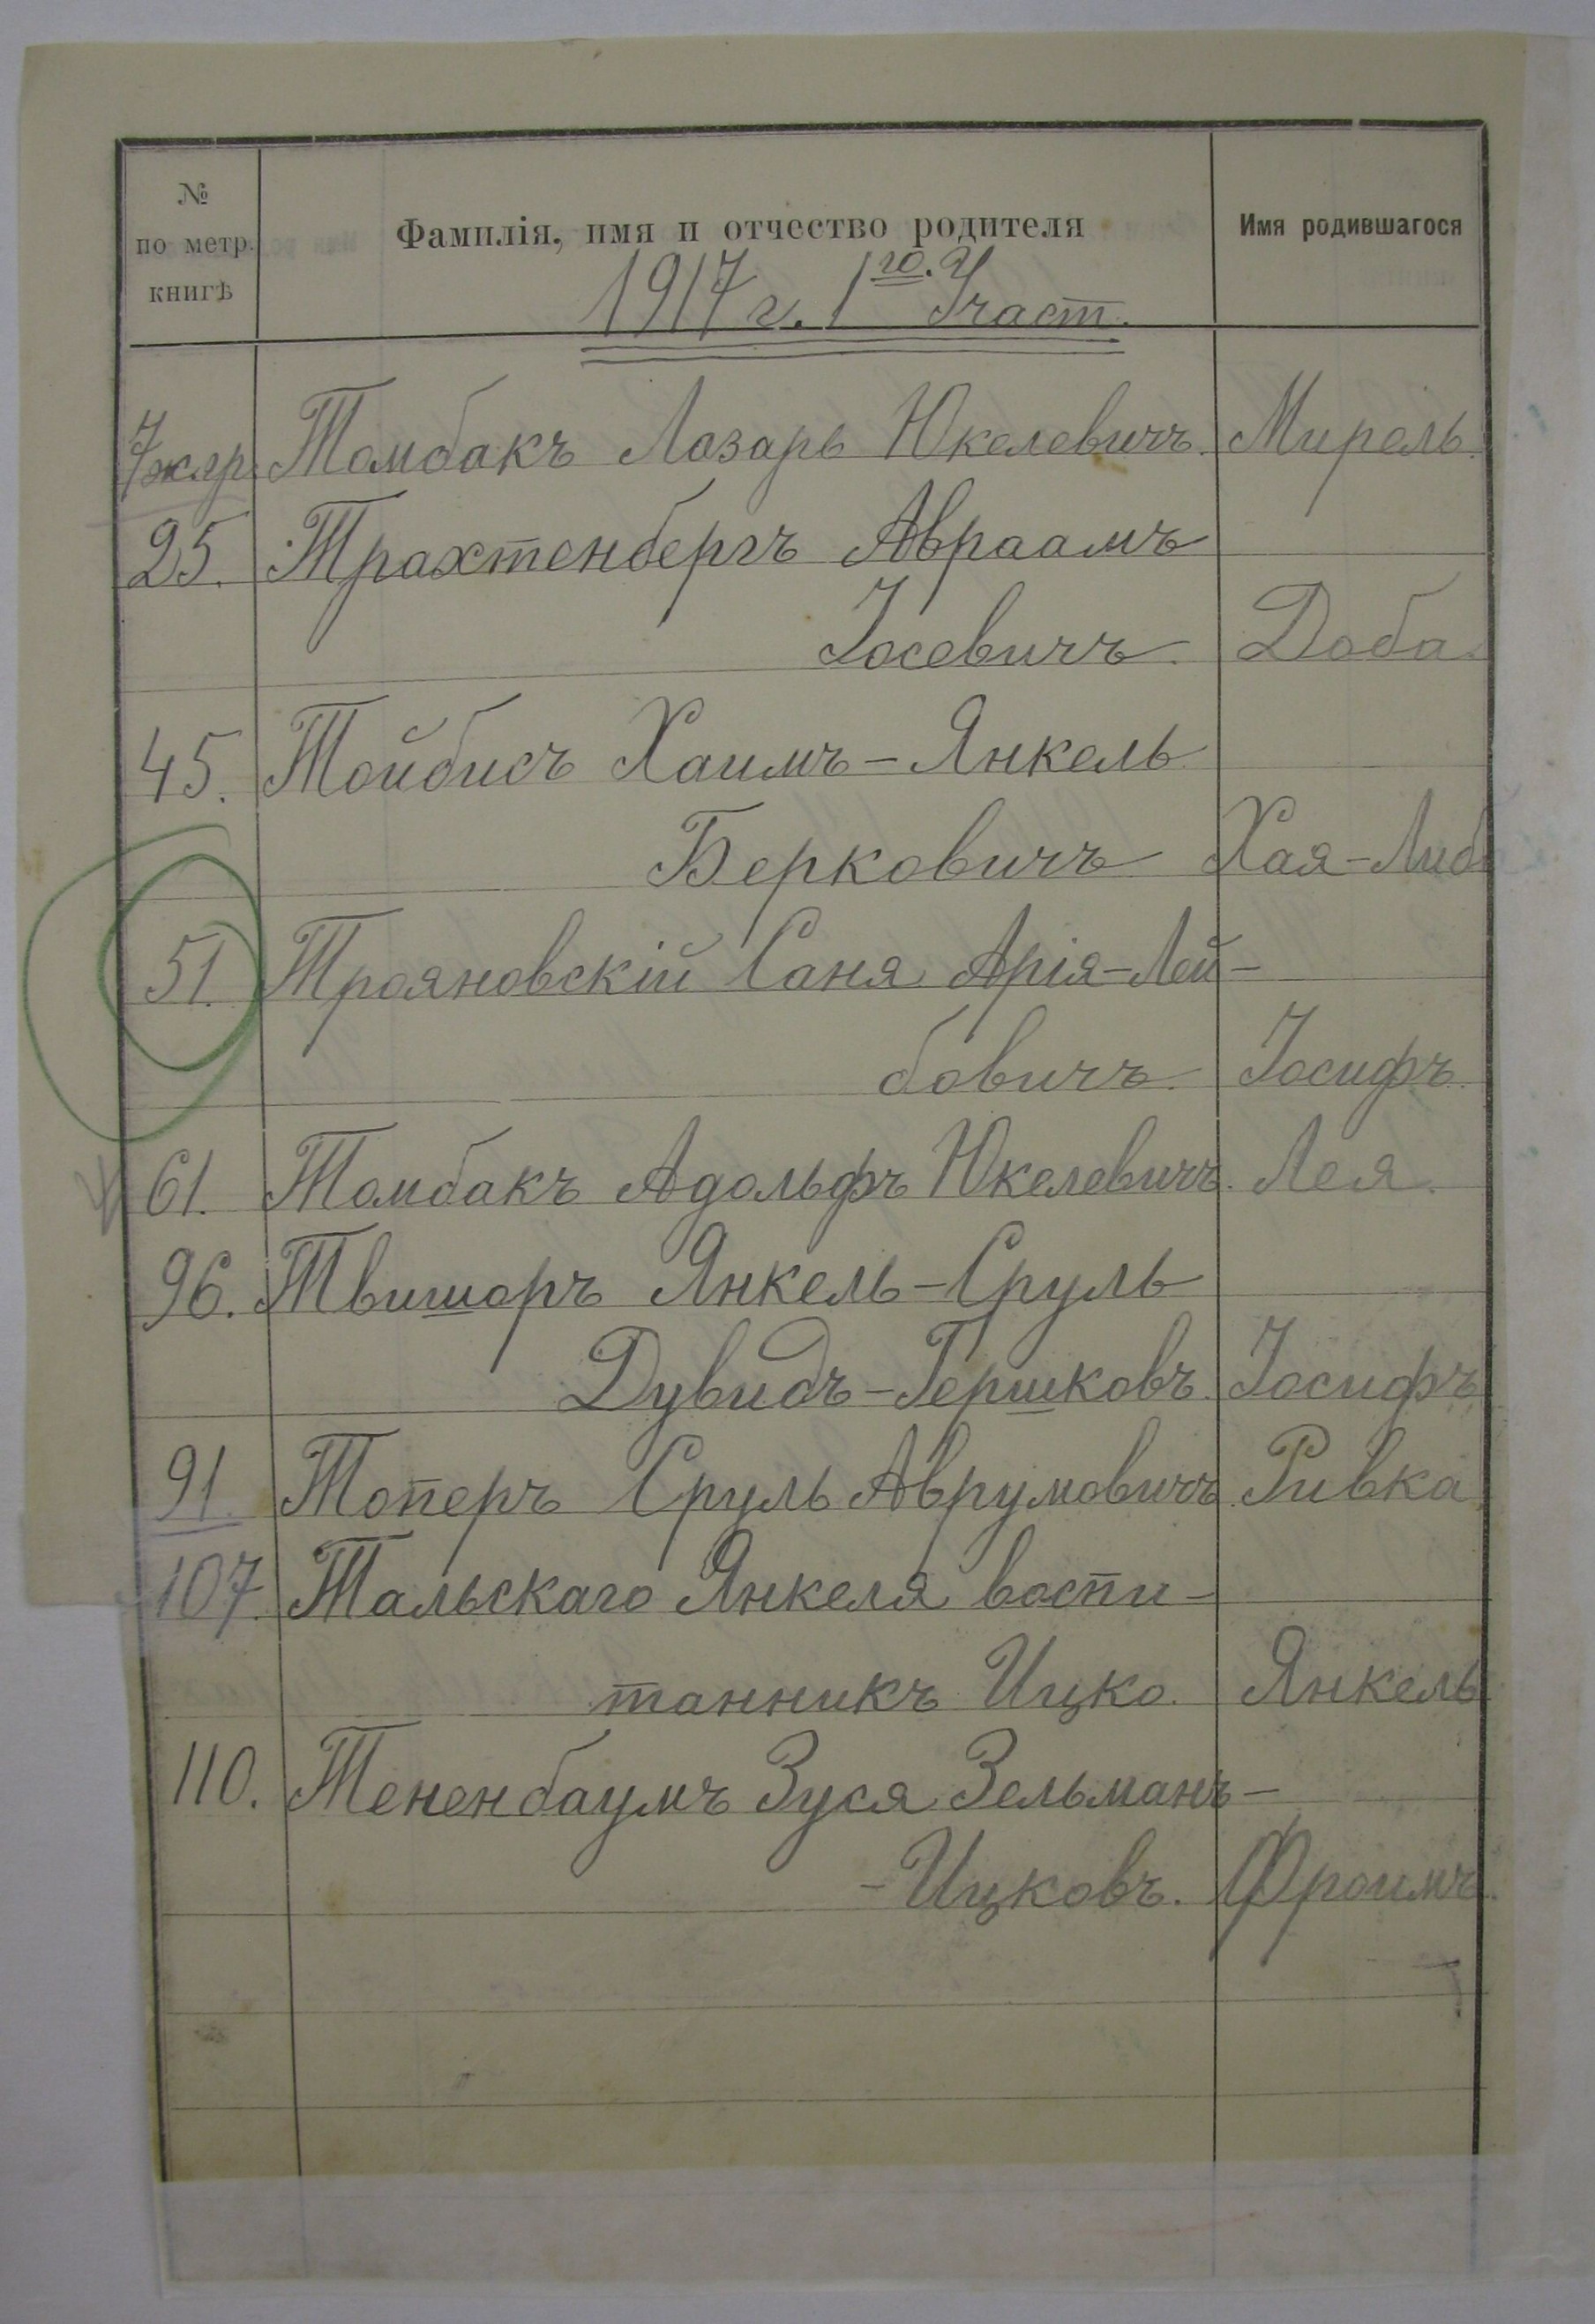 № по метр. книгѣ Фамилія, имя и отчество родителя Имя родившагося
1917 г. 1го Участ.
7 ж.гр. Томбакъ Лазарь Юкелевичъ. Мирель.
25. Трахтенбергъ Авраамъ
Іосевичъ. Доба.
45. Тойбисъ Хаимъ-Янкель
Берковичъ Хая-Либ
51. Трояновскій Саня Арія-Лей-
бовичъ. Іосифъ.
61. Томбакъ Адольфъ Юкелевичъ. Лея.
96. Твишоръ Янкель-Сруль
Дувидъ-Гершковъ. Іосифъ
91. Топеръ Сруль Аврумовичъ. Ривка
107. Тальскаго Янкеля воспи-
танникъ Ицко. Янкель
110. Тененбаумъ Зуся Зельманъ-
-Ицковъ. Фроимъ.